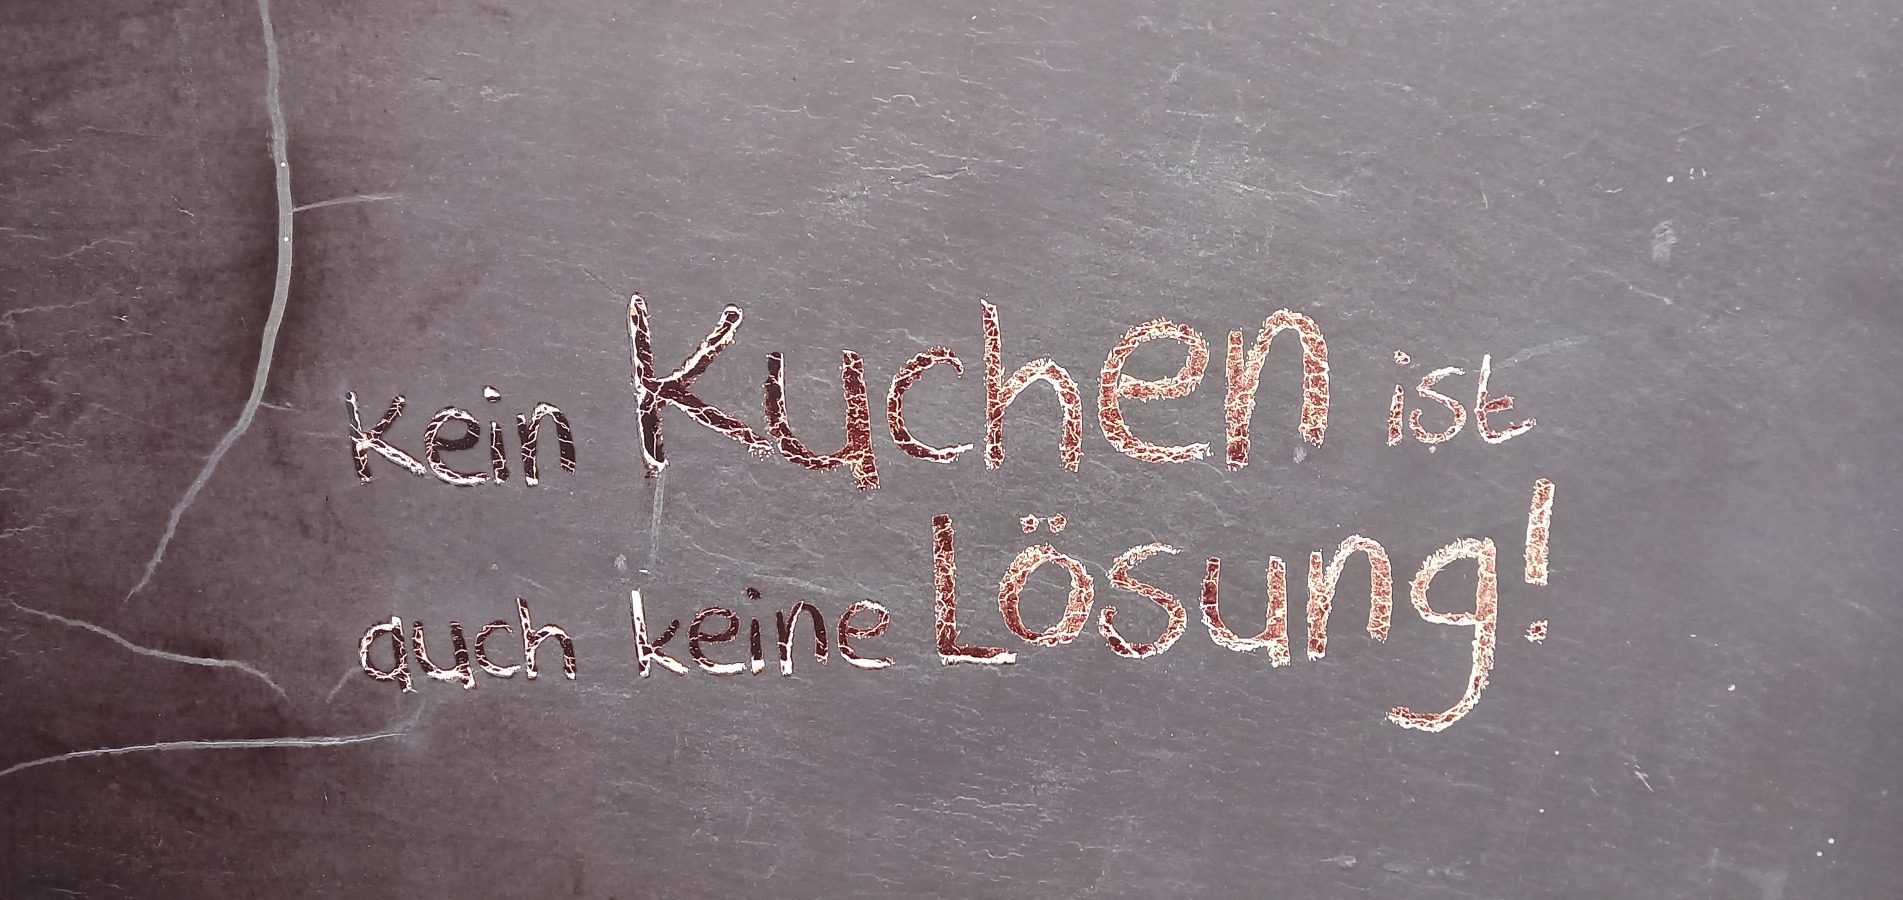 Kein Kuchen ist
auch keine Lösung!